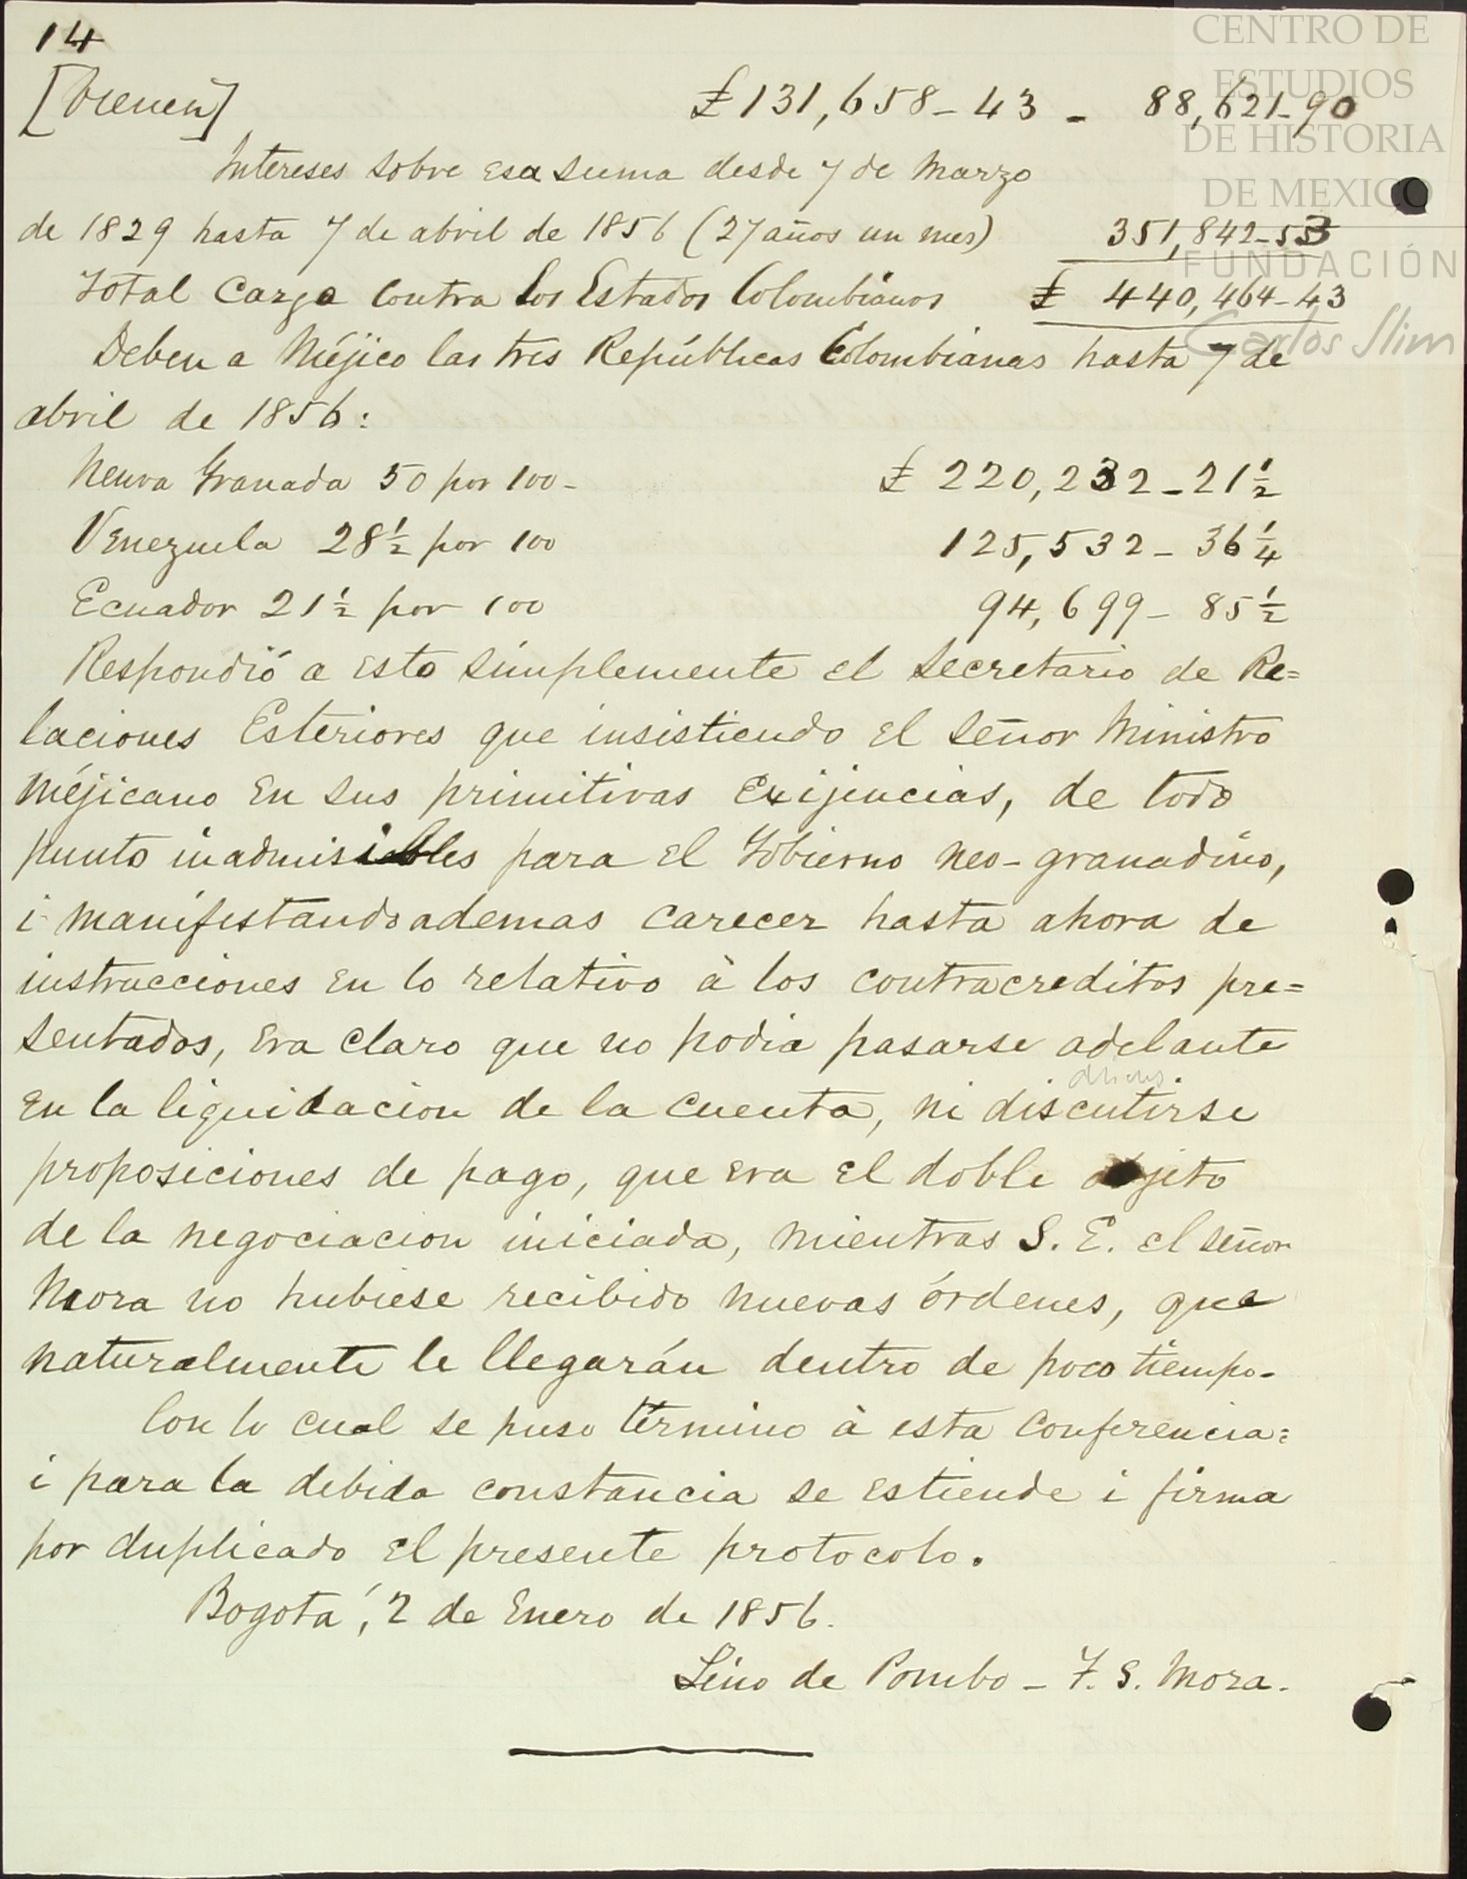 14
CENTRO DE
ESTUDIOS
DE HISTORIA
DE MEXICO
FUNDACIÓN
Carlos Slim
[Vienen] £131,658-43 - 88,621-90
Intereses sobre esa suma desde 7 de Marzo
de 1829 hasta 7 de abril de 1856 (27 años un mes) 351,842-53
Total Cargo contra los Estados Colombianos £ 440,464-43
Deben a Méjico las tres Repúblicas Colombianas hasta 7 de
abril de 1856:
Neuva Granada 50 por 100- £ 220,232-21½
Venezuela 28½ por 100 125,532-36¼
Ecuador 21½ por 100 94,699-85½
Respondió a esto simplemente el Secretario de Re=
laciones Esteriores que insistiendo el Señor Ministro
Méjicano en sus primitivas exijencias, de todo
punto inadmisibles para el Gobierno neo-granadino,
i manifestando ademas carecer hasta ahora de
instrucciones en lo relativo à los contracreditos pre=
sentados, era claro que no podia pasarse adelante
en la liquidacion de la cuenta, ni discutirse
proposiciones de pago, que era el doble objeto
de la negociacion iniciada, mientras S. E. el Señor
Mora no hubiese recibido nuevas órdenes, que
naturalmente le llegarán dentro de poco tiempo.
Con lo cual se puso término à esta conferencia:
i para la debida constancia se estiende i firma
por duplicado el presente protocolo.
Bogotá, 2 de Enero de 1856.
Lino de Pombo - F. S. Mora.